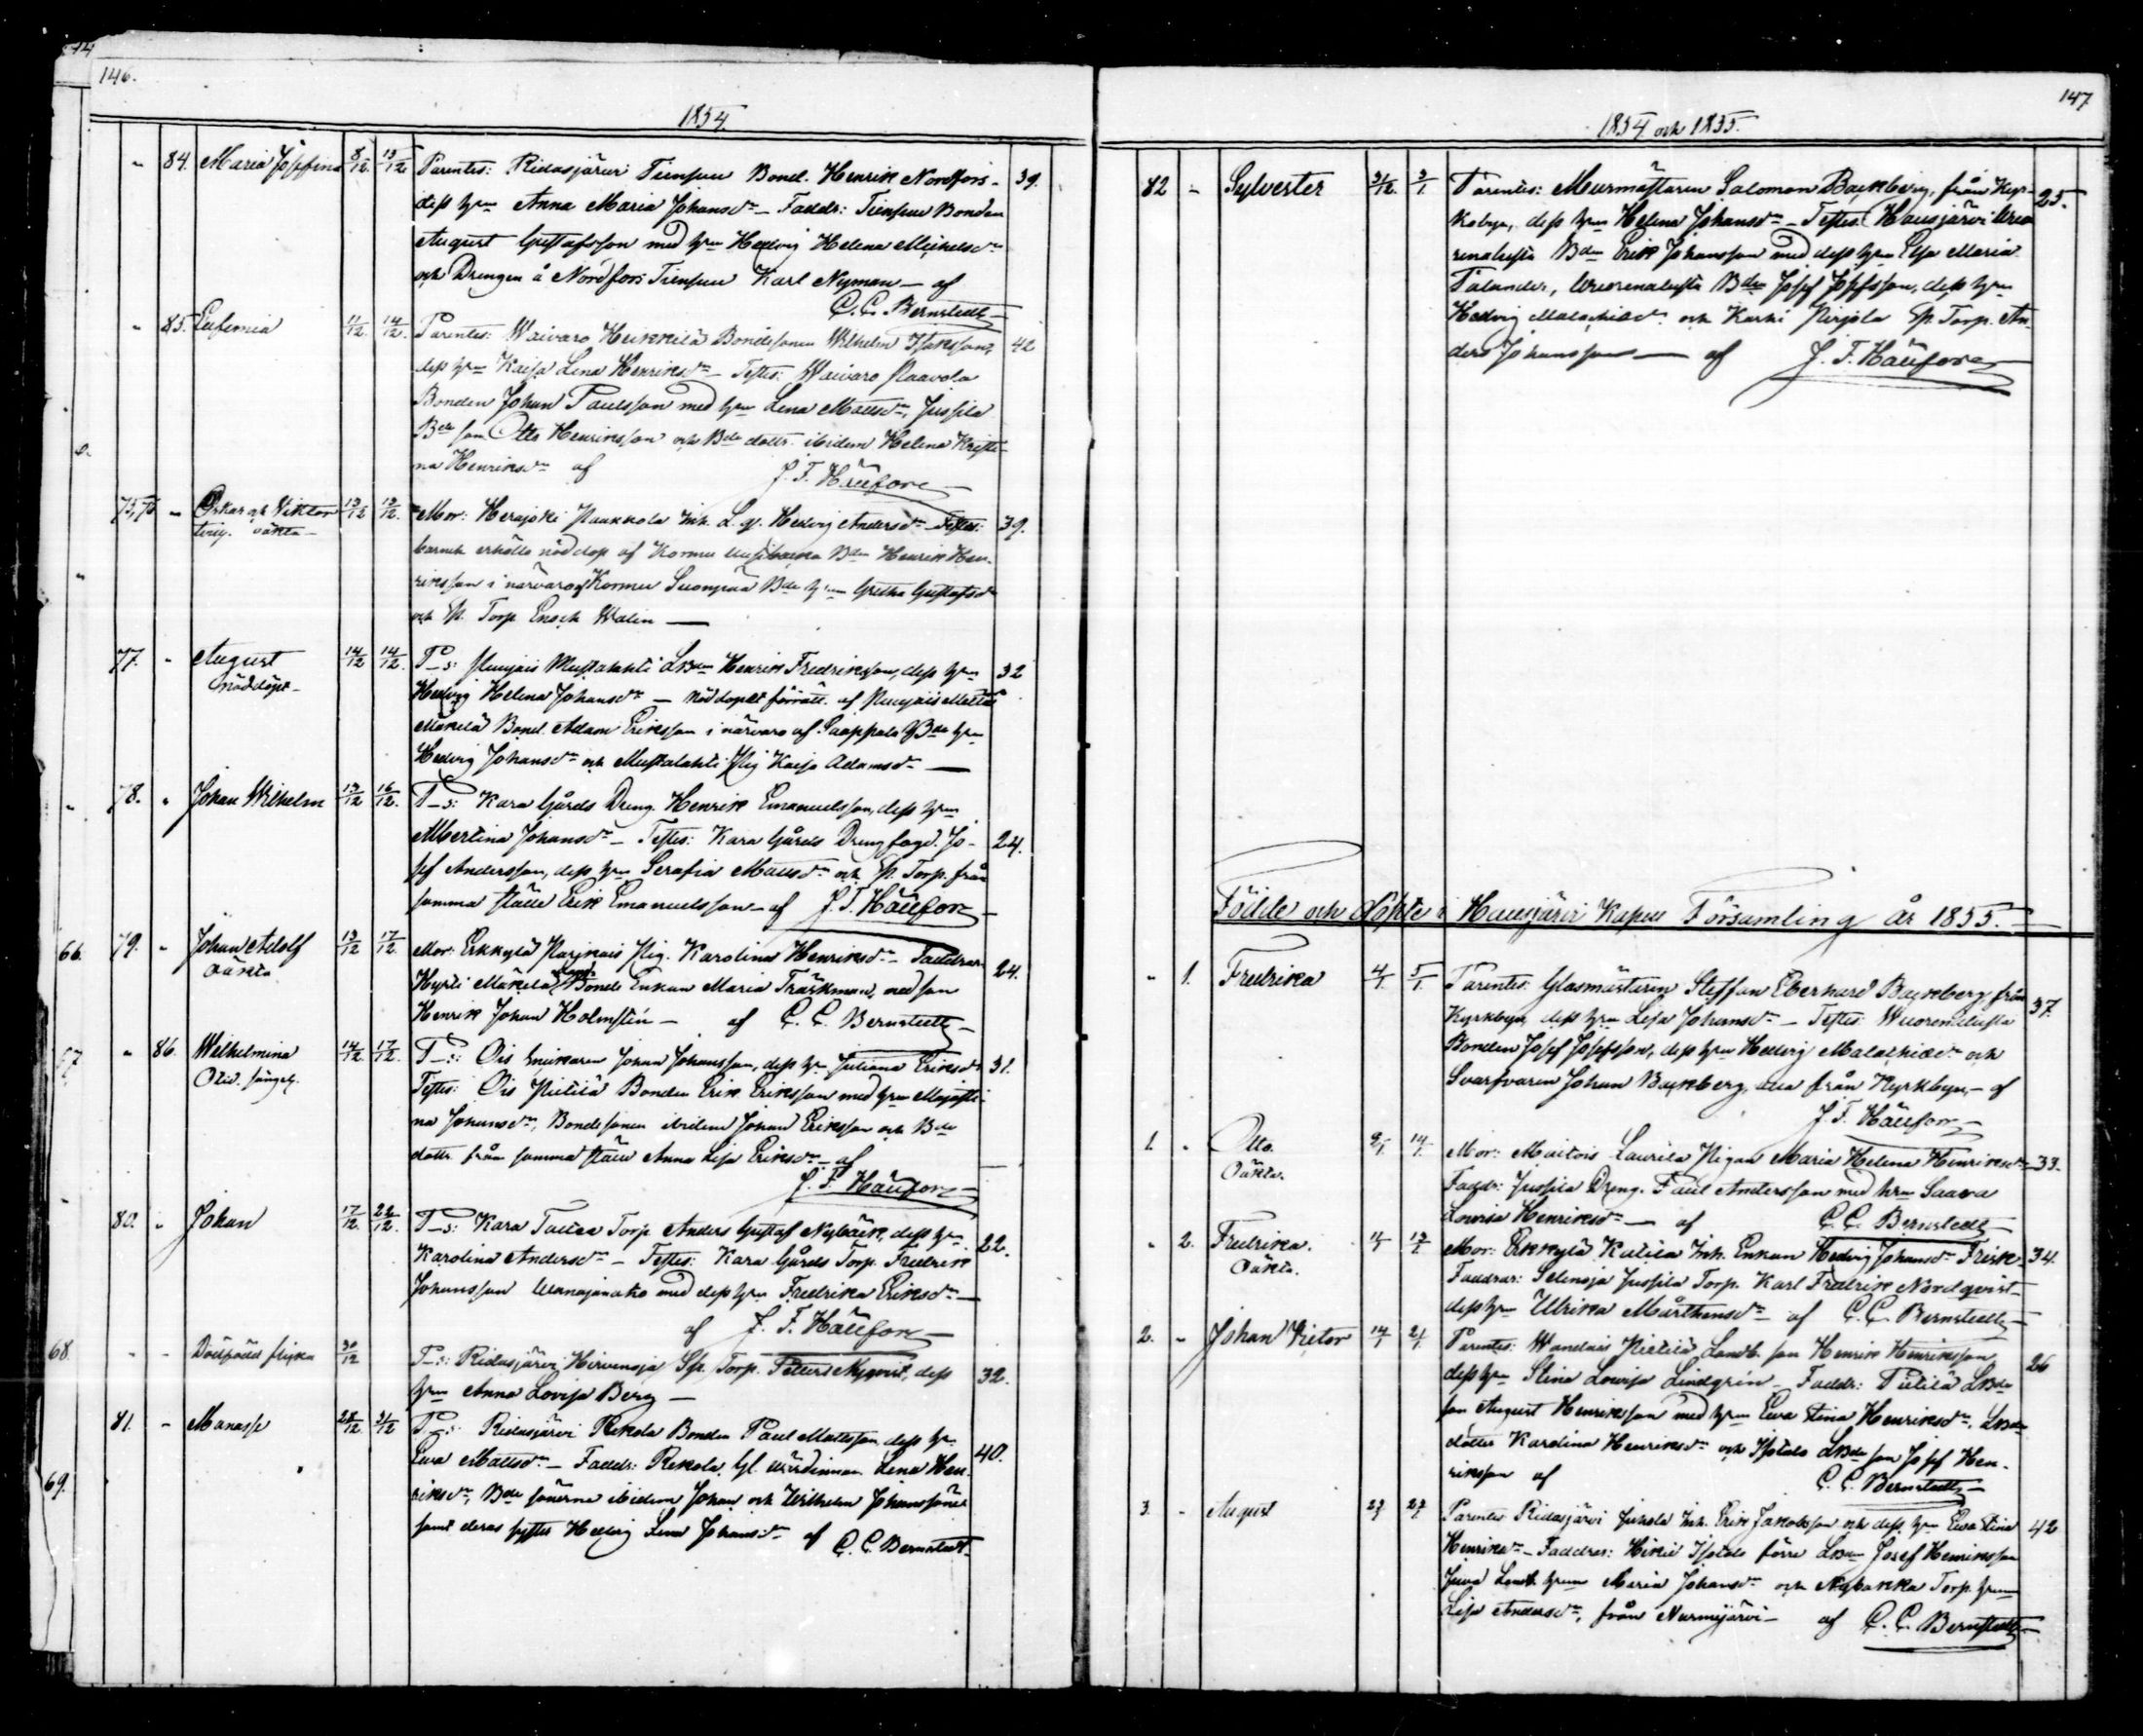 146.
1854.
" 84. Maria Josefina 8/12. 13/12 Parentes: Ridasjärvi Tienpuu Bond. Henrik Nordfors- 39.
dess hru Anna Maria Johansdr - Faddr: Tienpuu Bonden
August Gustafsson med hru Hedvig Helena Michelsdr
och Drengen å Nordfors Tienpuu Karl Nyman - af
C. C. Bernstedt
" 85. Eufemia 11/12. 14/12. Parentes: Waivaro Heikkilä Bondesonen Wilhelm Isaksson, 42
dess hru Kaisa Lena Henriksdr - Testes: Waivaro Paavola
Bonden Johan Paulsson med hru Lena Mattsdr, Jussila
Bde son Otto Henriksson och Bde dottr. ibidem Helena Kristi-
na Henriksdr af J. F. Häufor
75,76 " Oskar och Viktor 13/12 13/12. Mor: Herajoki Paakkola Inh. L. q. Hedvig Andersdr Testes: 39.
tvill. oäkta barnen erhöllo nöddop af Kormu Uusibacka Bdn Henrik Hen-
riksson i närvaro af Kormu Suonpää Bde hrun Gretha Gustafsdr
och Sp. Torp Enoch Walin
77. " August 14/12 14/12. P_s: Punjais Mustalahti LBdn Henrik Fredriksson, dess hru 32
nöddöpt Hedvig Helena Johansdr - Nöddopet förrätt. af Punjais Mattas
Mäkelä Bond. Adam Eriksson i närvaro af Saappala Bde hru
Hedvig Johansdr och Mustalahti Pig Kaisa Adamsdr
" 78. " Johan Wilhelm 13/12 16/12. P_s: Kara Gårds Dreng. Henrik Emanuelsson, dess hru
Albertina Johansdr - Testes: Kara Gårds Drengfogd. Jo- 24.
sef Andersson, dess hru Serafia Mattsdr och Sp. Torp. från
samma ställe Erik Emanuelsson - af J. F. Häufor
66. 79. " Johan Adolf 13/12 17/12. Mor: Erkkylä Pig. Karolina Henriksdr - Faddrar 24.
oäkta Hyrli Mäkelä Bonde Enkan Maria Träskman, med son
Henrik Johan Holmstén - af C. C. Bernstedt
67. " 86. Wilhelmina 14/12 17/12. P_s: Ois Snickaren Johan Johansson, dess hr Juliana Eriksdr 31.
Testes: Ois Pietilä Bonden Erik Eriksson med hru Majasti-
na Johansdr, Bondesonen ibidem Johan Eriksson och Bde
dottr från samma ställe Anna Lisa Eriksdr - af
J. F. Häufor
80. " Johan 17/12. 22/12. P_s: Kara Torp Anders Gustaf Nybäck, dess hr 22.
Karolina Andersdr - Testes: Kara Gårds Torp. Fredrik
Johansson Wanajanoko med dess hru Fredrika Eriksdr
af J. F. Häufor
68. " " Dödfödd flicka 30/12 P_s: Ridasjärvi Hirvenoja Sp. Torp. Petter Nyqvist, dess 32.
hru Anna Lovisa Berg -
81. " Manasse 28/12. 31/12 P_s: Ridasjärvi Rekola Bonden Paul Mattsson, dess hr 40.
Ewa Mattsdr - Faddr: Rekola Gl. värdinnan Lena Hen-
riksdr, Bde sönerna ibidem Johan och Wilhelm Johanssöner
samt deras syster Hedvig Lena Johansdr af C. C. Bernstedt
69.
147
1854 och 1855.
82 " Sylvester 31/12. 3/1. Parentes: Murmästaren Salomon Backberg, från Kyr- 25.
kobyn, dess hru Helena Johansdr - Testes: Hausjärvi Wuo-
renalusta Bdn Erik Johansson med dess hru Elsa Maria
Talander, Wuorenalusta Bdn Josef Josefsson, dess hru
Hedvig Malachiædr och Karhi Pirjola Sp. Torp. An-
ders Johansson - af J. F. Häufor
Födde och döpte i Hausjärvi Kapell Församling år 1855.
" 1. Fredrika 4/1 5/1 Parentes: Glasmästaren Steffan Eberhard Backberg från 37.
Kyrkbyn, dess hru Lisa Johansdr - Testes: Wuorenalusta
Bonden Josef Josefsson, dess hru Hedvig Malachiædr och
Svarfvaren Johan Backberg, alla från Kyrkbyn, - af
J. F. Häufor
1. " Otto 9/1 14/1. Mor: Maitois Laurila Pigan Maria Helena Henriksdr 33.
Oäkta. Faddr: Jussila Dreng. Paul Andersson med hru Saara
Lovisa Henriksdr - af C. C. Bernstedt
" 2. Fredrika. 11/1 13/1 Mor: Erkkylä Kutila Inh. Enkan Hedvig Johansdr Frisk 34.
Oäkta. Faddrar: Selinoja Jussila Torp. Karl Fredrik Nordqvist
dess hr Ulrika Mårthensdr af C. C. Bernstedt
2. " Johan Victor 14/1 21/1. Parentes: Wandais Pietilä Landb. son Henrik Henriksson 26
dess hru Stina Lovisa Lindgrén - Faddr: Pietilä LBde
son August Henriksson med hru Ewa Stina Henriksdr, LBde
dotter Karolina Henriksdr och Isotalo LBde son Josef Hen-
riksson af C. C. Bernstedt
3. " August 27 Parentes Ridasjärvi Juhola Inh. Erik Jakobsson och dess hru Ewa Stina 42
Henriksdr - Faddrar: Hikiä Isotalo förre LBdn Josef Henriksson
Landb. hrun Maria Johansdr och Nybakka Torp. hrun
Lisa Andersdr, från Nurmijärvi - af C. C. Bernstedt